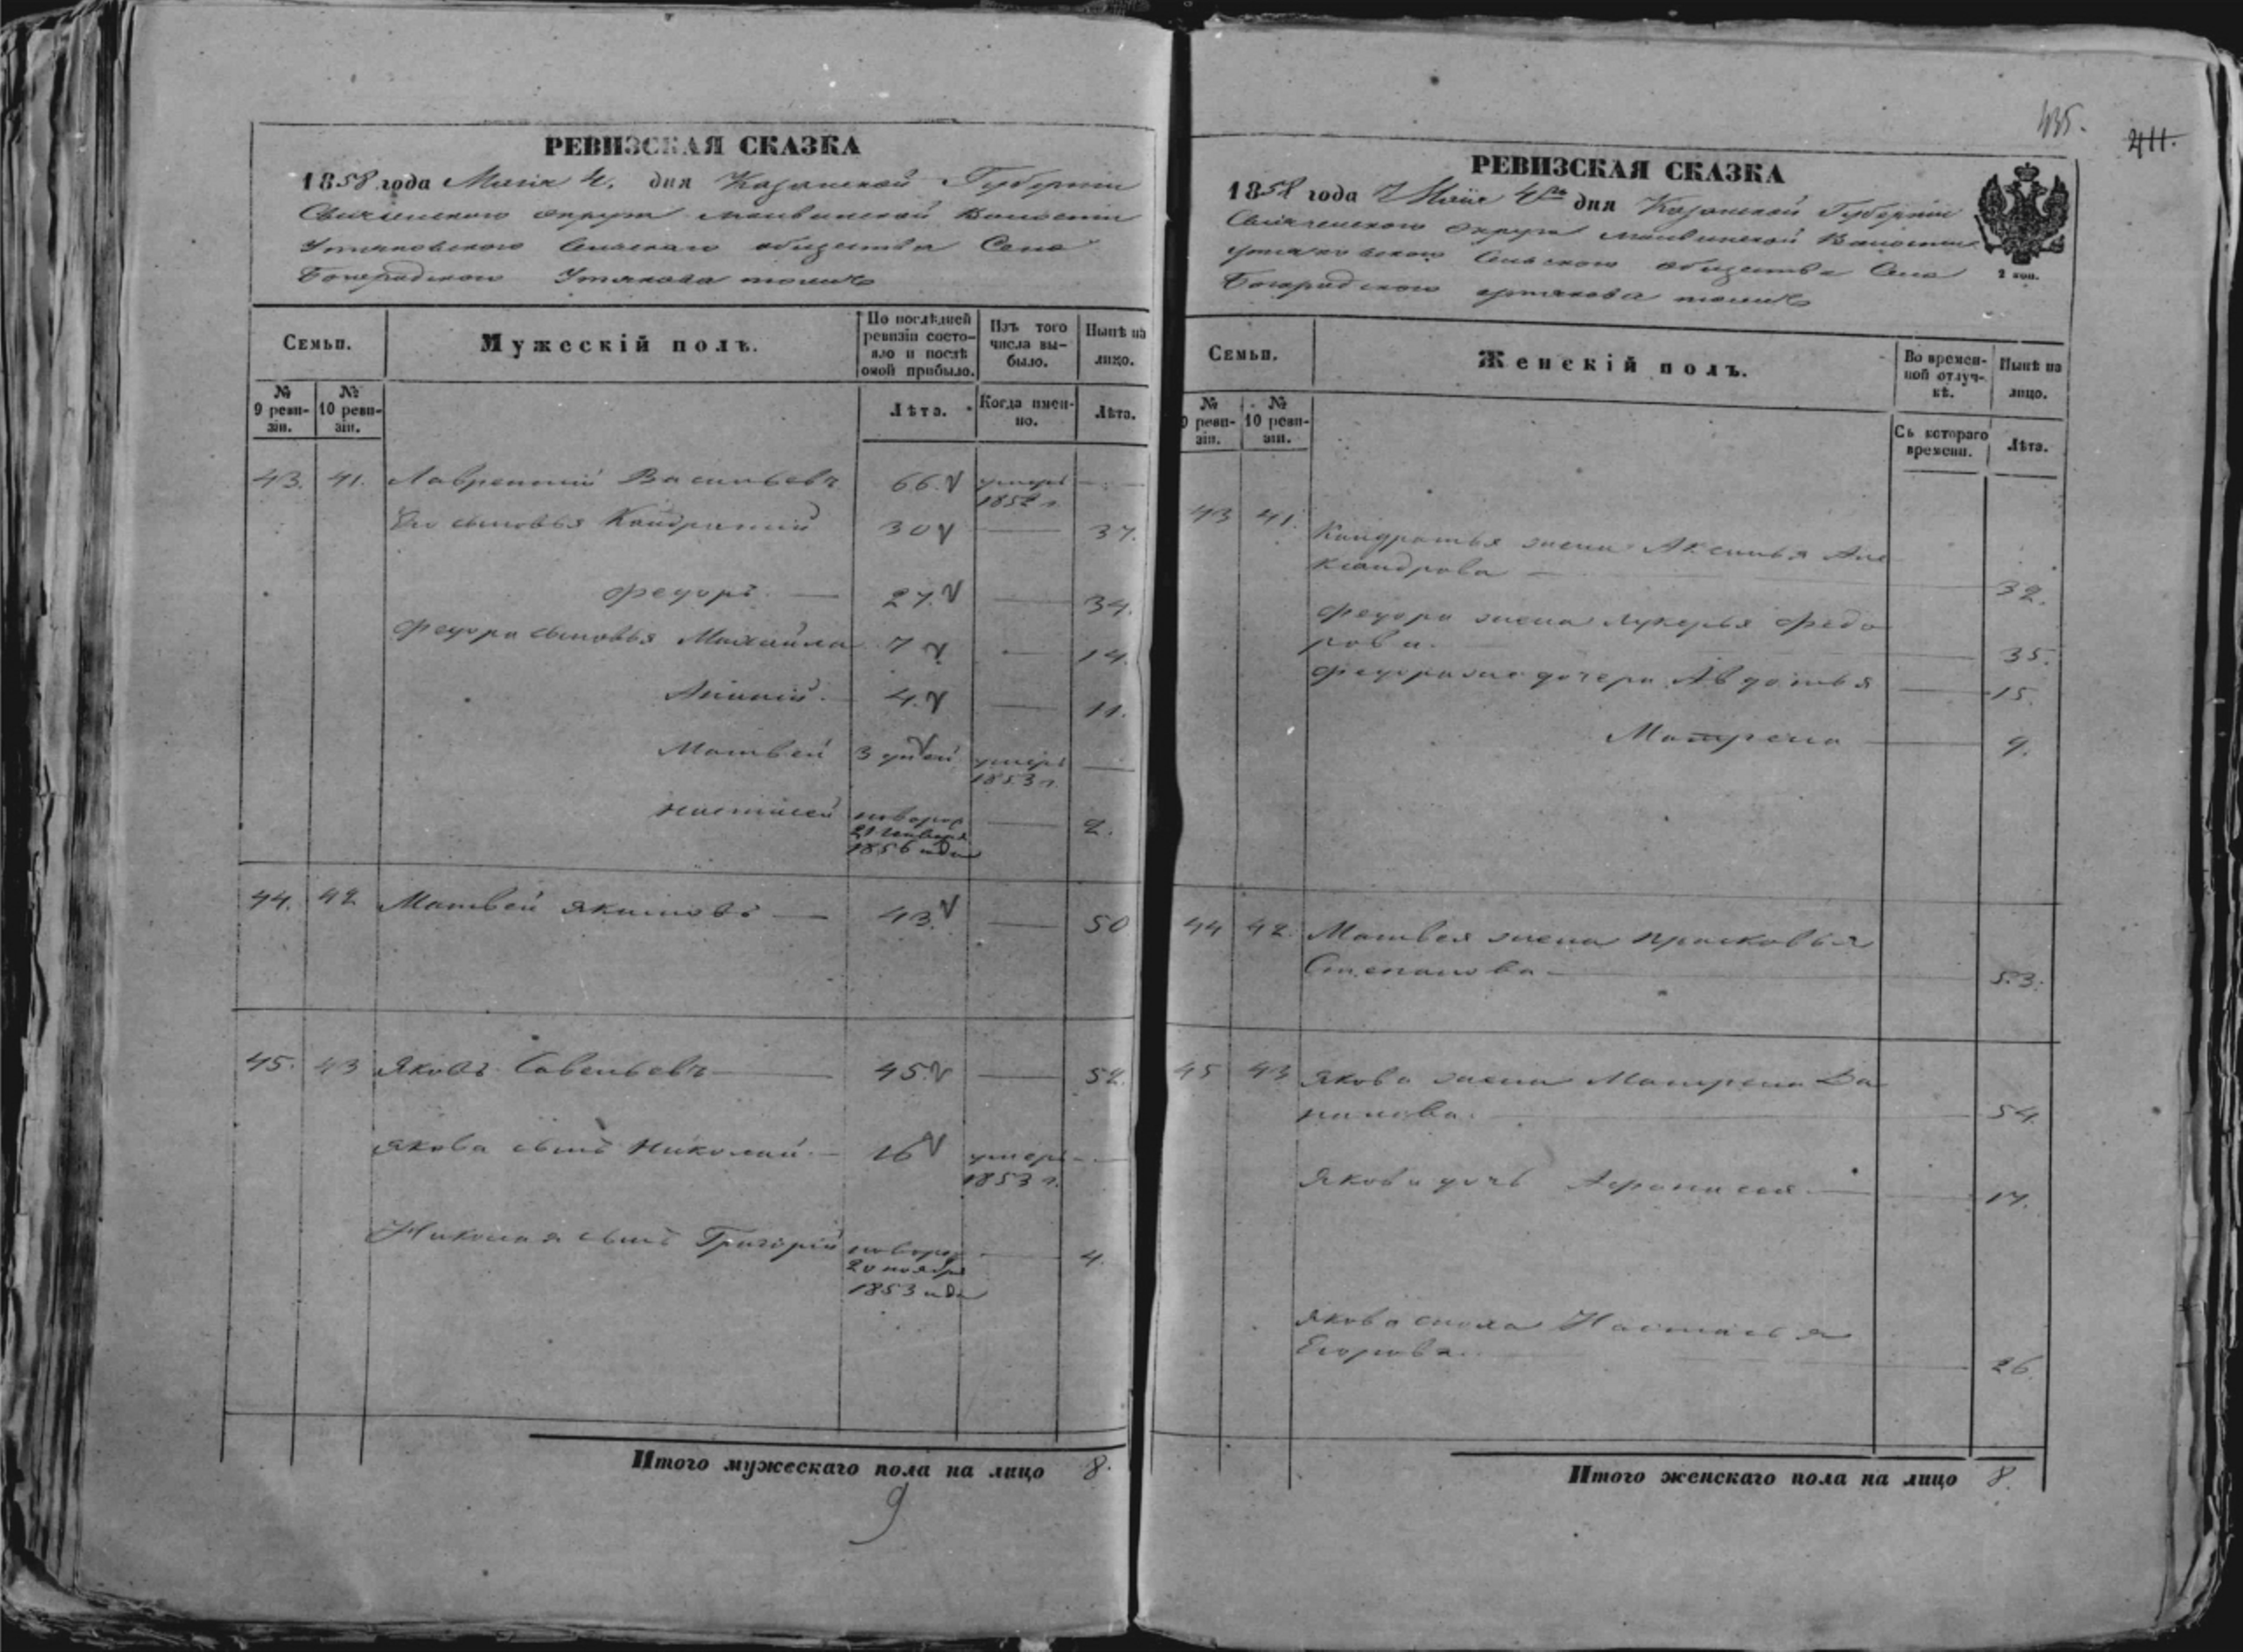 РЕВИЗСКАЯ СКАЗКА
1858 года Маія 4. дня Казанской Губерніи
округа Волости
Утяковского Сельскаго общества Село
Богородского Утякова тожъ
Семьи.
Мужескій полъ.
По послѣдней ревизіи состояло и послѣ оной прибыло.
Изъ того числа выбыло.
Нынѣ на лицо.
№ 9 ревизіи.
№ 10 ревизіи.
Лѣта.
Когда именно.
Лѣта.
43. 41. Лаврентій Васильевъ 66. умеръ 1852 г.
Его сыновья Кондратій 30 — 37.
Федоръ — 27. — 34.
Федора сыновья Михайла 7 — 14.
4. — 11.
Матвей 3 дней умеръ 1853 г. —
новорож 21 Генваря 1856 года — 2.
44. 42 Матвей Якимовъ — 43. — 50
45. 43 Яковъ Савельевъ — 45. — 52.
Якова сынъ Николай — 16 умеръ 1853 г. —
Николая сынъ Григорій новорож 20 ноября 1853 года — 4.
Итого мужескаго пола на лицо 8.
9
435.
411.
РЕВИЗСКАЯ СКАЗКА
1858 года Маія 4го дня Казанской Губерніи
округа Волости
Утяковского Сельского общества Село
Богородского Утякова тожъ
2 коп.
Семьи.
Женскій полъ.
Во временной отлучкѣ.
Нынѣ на лицо.
№ 9 ревизіи.
№ 10 ревизіи.
Съ котораго времени.
Лѣта.
43 41. Кондратья жена Аксинья Але
ксандрова — 32.
Федора жена Лукерья Федо
рова. — 35.
Федора же дочери Авдотья — 15.
Матрена — 9.
44 42. Матвея жена Прасковья
Степанова — 53.
45 43 Якова жена Матрена Да
нилова. — 54.
Якова дочь — 17.
Якова сноха Настасья
Егорова. — 26.
Итого женскаго пола на лицо 8.